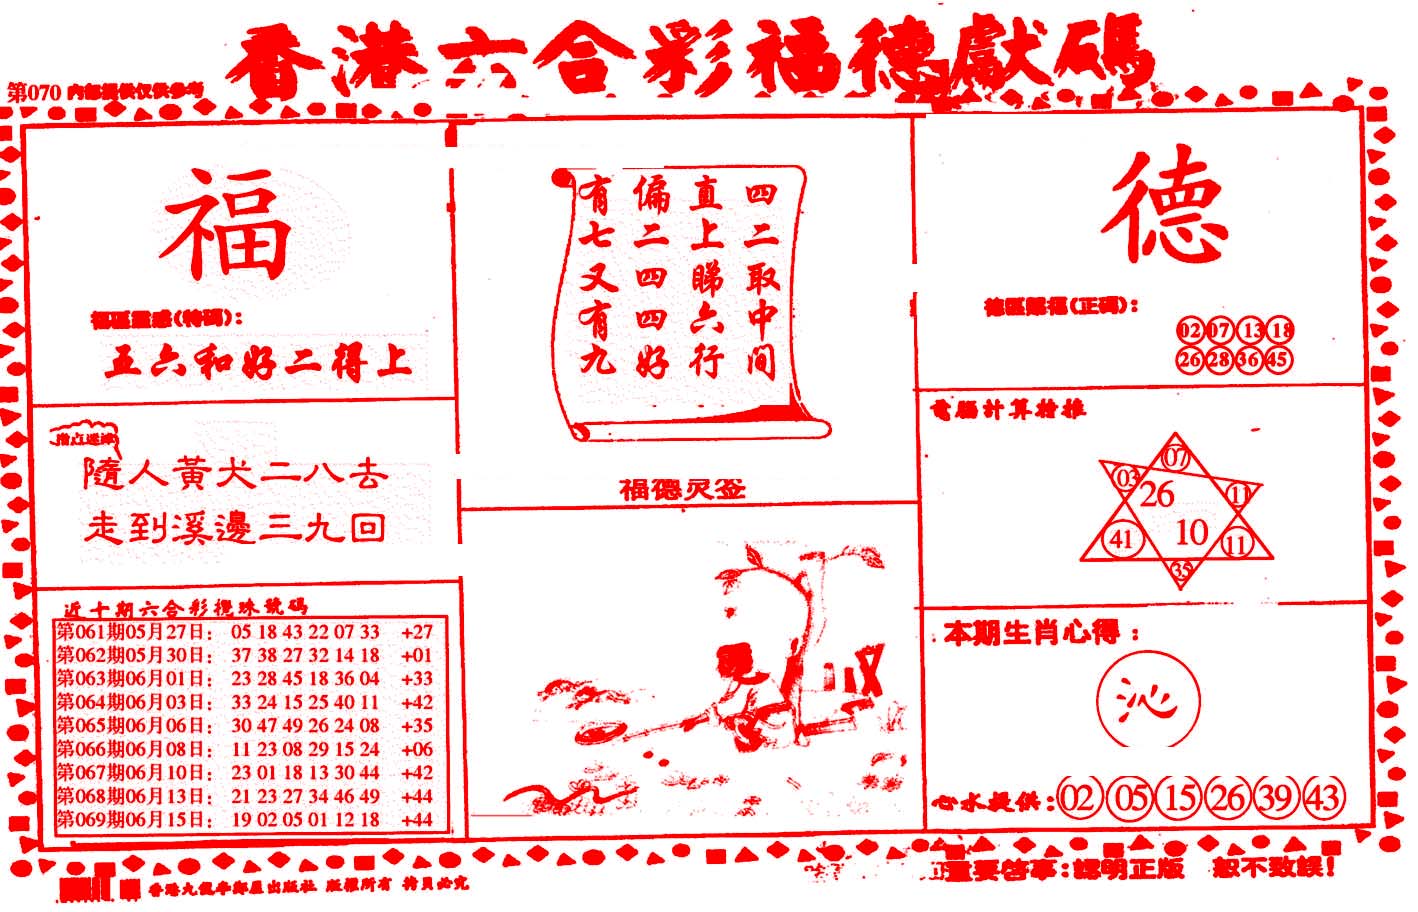 香港六合彩福德獻碼
第070 内部提供仅供参考
福
福區靈感(特碼):
五六和好二得上
指点迷津
隨人黃犬二八去
走到溪邊三九回
近十期六合彩攪珠號碼
第061期05月27日: 05 18 43 22 07 33 +27
第062期05月30日: 37 38 27 32 14 18 +01
第063期06月01日: 23 28 45 18 36 04 +33
第064期06月03日: 33 24 15 25 40 11 +42
第065期06月06日: 30 47 49 26 24 08 +35
第066期06月08日: 11 23 08 29 15 24 +06
第067期06月10日: 23 01 18 13 30 44 +42
第068期06月13日: 21 23 27 34 46 49 +44
第069期06月15日: 19 02 05 01 12 18 +44
四二取中间
直上睇六行
偏二四四好
有七又有九
福德灵签
德
德區賜福(正碼):
02 07 13 18
26 28 36 45
電腦計算推
07
03 26 11
41 10 11
35
本期生肖心得:
沁
心水提供: 02 05 15 26 39 43
香港九龍出版社 版權所有 拷貝必究
重要啓事:認明正版 恕不致誤!